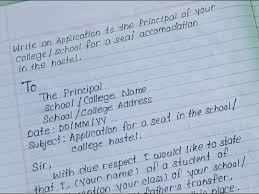 Write an Application to the Principal of your
College/School for a seat accomodation
in the hostel.
To
The Principal
School/College Name
School/College Address
Date: DD/MM/YY
Subject: Application for a seat in the school/
college hostel.
Sir,
With due respect I would like to state
that I, (your name) of a student of
(mention your class) of your school/
father's transfer,